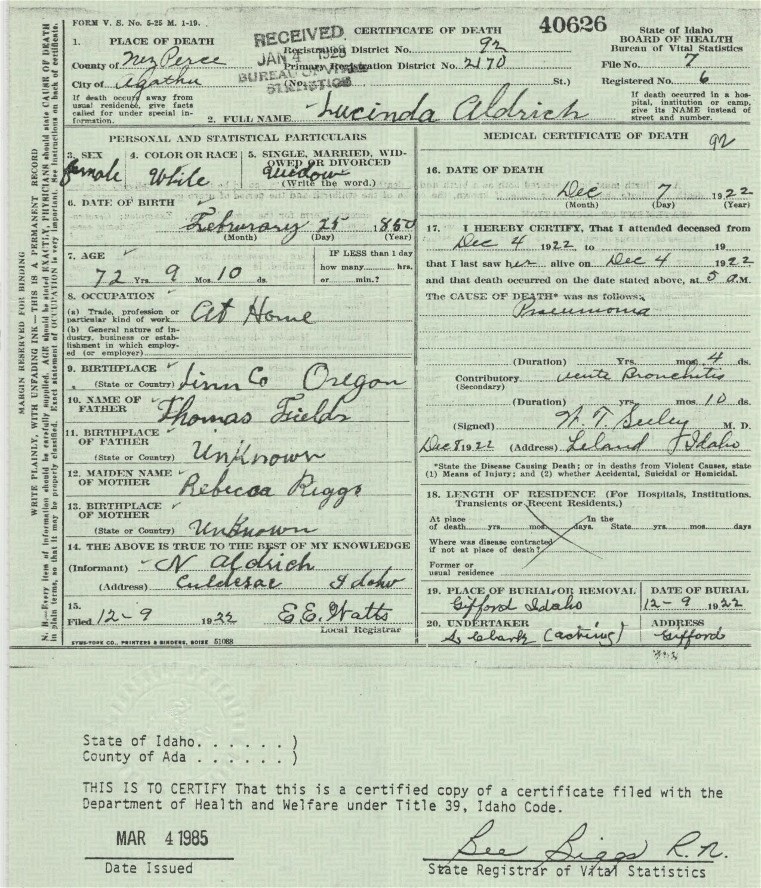 FORM V. S. No. 5-25 M. 1-19.
CERTIFICATE OF DEATH
40626
State of Idaho
BOARD OF HEALTH
Bureau of Vital Statistics
RECEIVED
JAN 4 1923
BUREAU OF VITAL
STATISTICS
1. PLACE OF DEATH
County of Nez Perce
City of Agatha
If death occurs away from
usual residence, give facts
called for under special in-
formation.
Registration District No. 92
Primary Registration District No. 2170
(No. St.)
File No. 7
Registered No. 6
If death occurred in a hos-
pital, institution or camp,
give its NAME instead of
street and number.
2. FULL NAME Lucinda Aldrich
PERSONAL AND STATISTICAL PARTICULARS
3. SEX
female
4. COLOR OR RACE
White
5. SINGLE, MARRIED, WID-
OWED OR DIVORCED
Widow
(Write the word.)
6. DATE OF BIRTH
February 25 1850
(Month) (Day) (Year)
7. AGE
72 Yrs. 9 Mos. 10 ds.
IF LESS than 1 day
how many hrs.
or min.?
8. OCCUPATION
(a) Trade, profession or
particular kind of work At Home
(b) General nature of in-
dustry, business or estab-
lishment in which employ-
ed (or employer)
9. BIRTHPLACE
(State or Country) Linn Co Oregon
10. NAME OF
FATHER Thomas Fields
11. BIRTHPLACE
OF FATHER
(State or Country) UnKnown
12. MAIDEN NAME
OF MOTHER Rebecca Riggs
13. BIRTHPLACE
OF MOTHER
(State or Country) UnKnown
14. THE ABOVE IS TRUE TO THE BEST OF MY KNOWLEDGE
(Informant) N Aldrich
(Address) Culdesac Idaho
15.
Filed 12-9 1922 E.E. Watts
Local Registrar
SYMS-YORK CO., PRINTERS & BINDERS, BOISE 51088
MEDICAL CERTIFICATE OF DEATH
92
16. DATE OF DEATH
Dec 7 1922
(Month) (Day) (Year)
17. I HEREBY CERTIFY, That I attended deceased from
Dec 4 1922 to 19
that I last saw her alive on Dec 4 1922
and that death occurred on the date stated above, at 5 a.M.
The CAUSE OF DEATH* was as follows:
Pneumonia
(Duration) Yrs. mos. 4 ds.
Contributory Bronchitis
(Secondary)
(Duration) yrs. mos. 10 ds.
(Signed) W. T. Seeley M. D.
Dec 8 1922 (Address) Leland Idaho
*State the Disease Causing Death; or in deaths from Violent Causes, state
(1) Means of Injury; and (2) whether Accidental, Suicidal or Homicidal.
18. LENGTH OF RESIDENCE (For Hospitals, Institutions,
Transients or Recent Residents.)
At place In the
of death yrs. mos. days. State yrs. mos. days
Where was disease contracted
if not at place of death?
Former or
usual residence
19. PLACE OF BURIAL OR REMOVAL
Gifford Idaho
DATE OF BURIAL
12-9 1922
20. UNDERTAKER
Clark (acting)
ADDRESS
Gifford
MARGIN RESERVED FOR BINDING
WRITE PLAINLY, WITH UNFADING INK—THIS IS A PERMANENT RECORD
N. B.—Every item of information should be carefully supplied. AGE should be stated EXACTLY, PHYSICIANS should state CAUSE OF DEATH
in plain terms, so that it may be properly classified. Exact statement of OCCUPATION is very important. See instructions on back of certificate.
State of Idaho. . . . . . )
County of Ada . . . . . . )
THIS IS TO CERTIFY That this is a certified copy of a certificate filed with the
Department of Health and Welfare under Title 39, Idaho Code.
MAR 4 1985
Date Issued
Bee Biggs R.N.
State Registrar of Vital Statistics